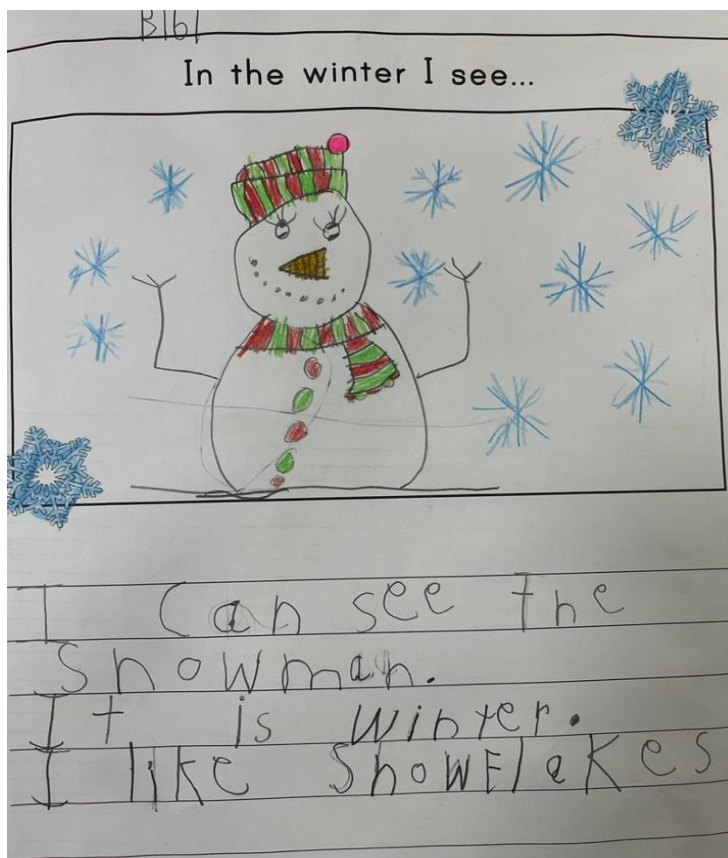 In the winter I see...
I Can see the
Snowman.
It is winter.
I like SnowFlakes